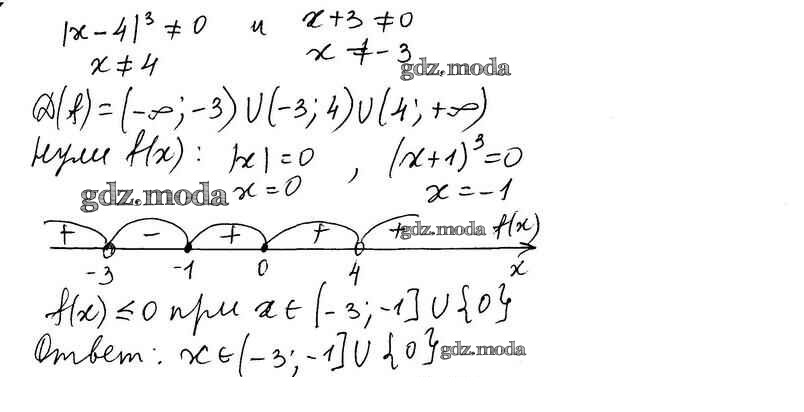 |x − 4|³ ≠ 0 и x + 3 ≠ 0
x ≠ 4 x ≠ −3
gdz.moda
D(f) = (−∞; −3) ∪ (−3; 4) ∪ (4; +∞)
Нули f(x): |x| = 0, (x+1)³ = 0
gdz.moda x = 0 x = −1
+ − + + + gdz.moda f(x)
−3 −1 0 4 x
f(x) ≤ 0 при x ∈ (−3; −1] ∪ {0}
Ответ: x ∈ (−3; −1] ∪ {0} gdz.moda